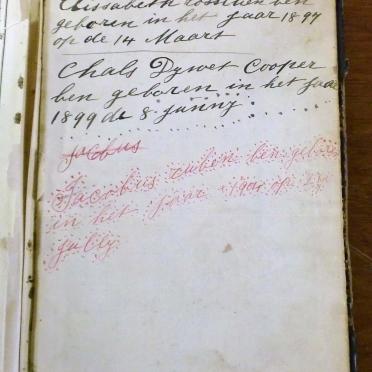 Elisabeth ben
geboren in het jaar 1897
op de 14 Maart
Chals Dywet Cooper
ben geboren in het jaar
1899 de 8 junny
Jacobus
Jacobus ruben ben gebor
in het jaar 190 op
july